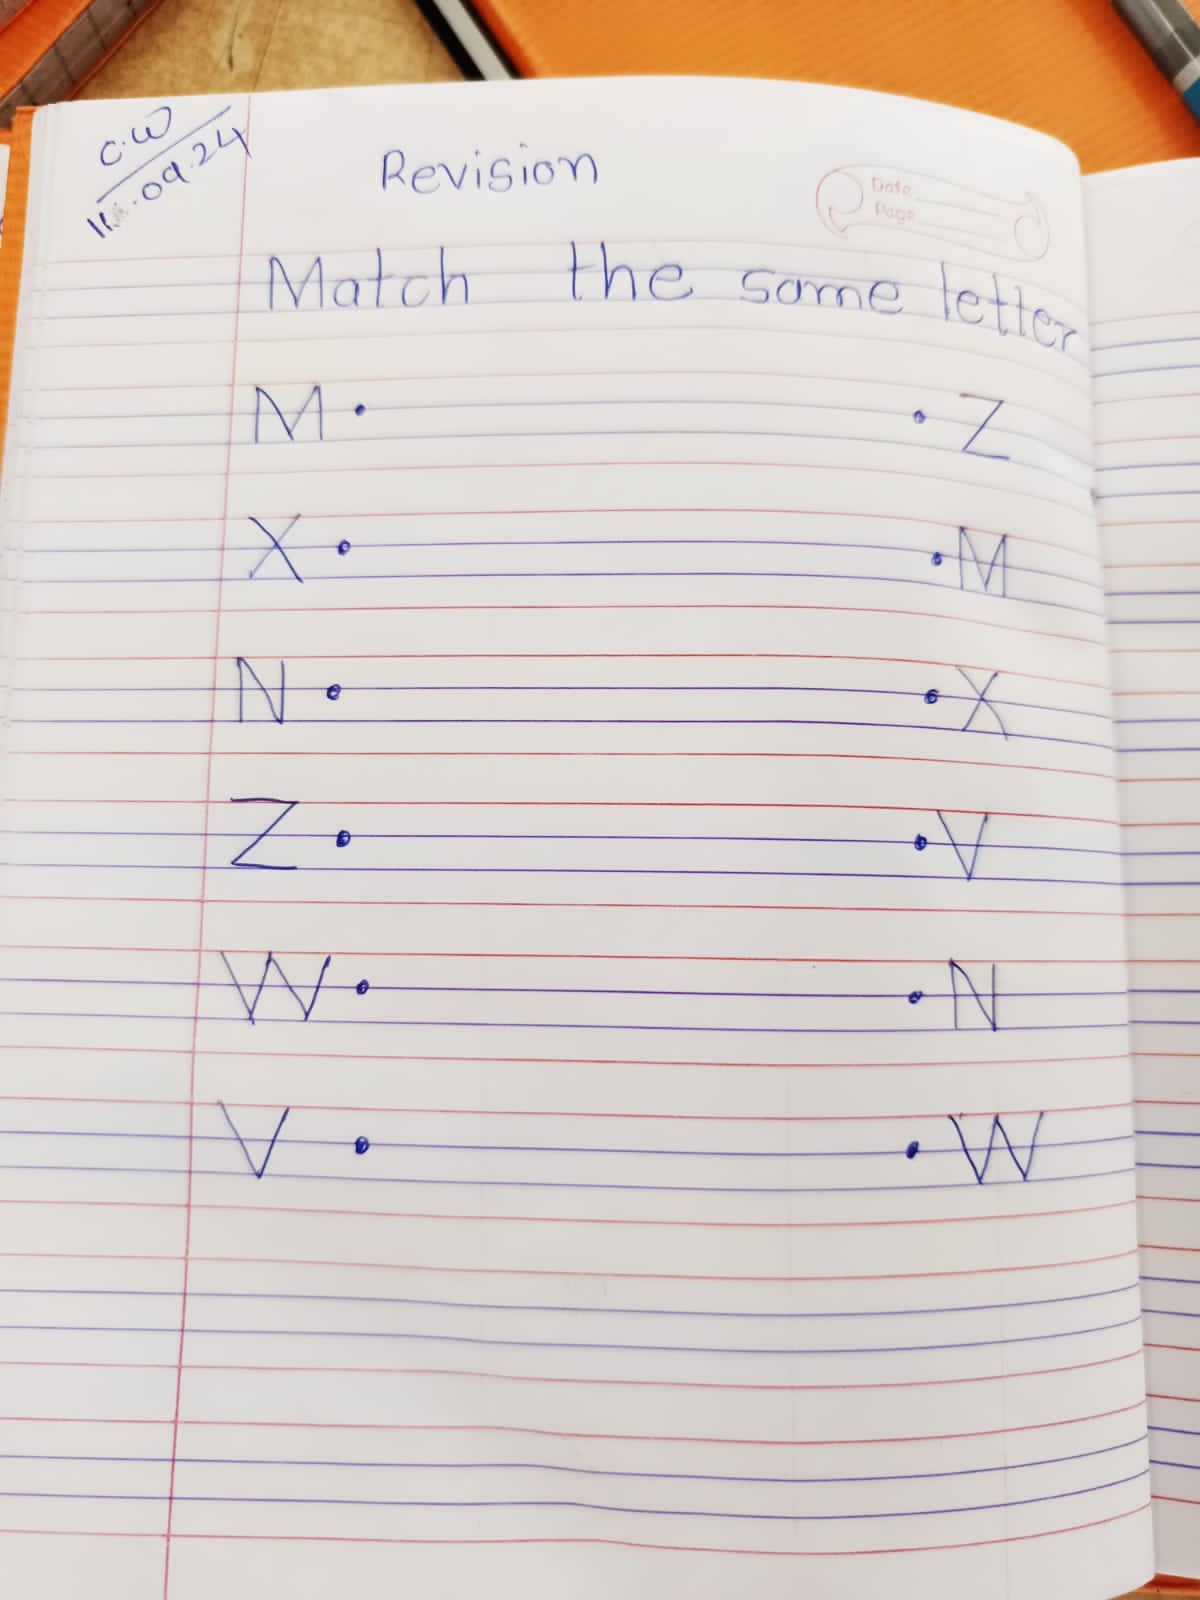 C.W
11.09.24
Revision
Date
Page
Match the same letter
M • • Z
X • • M
N • • X
Z • • V
W • • N
V • • W